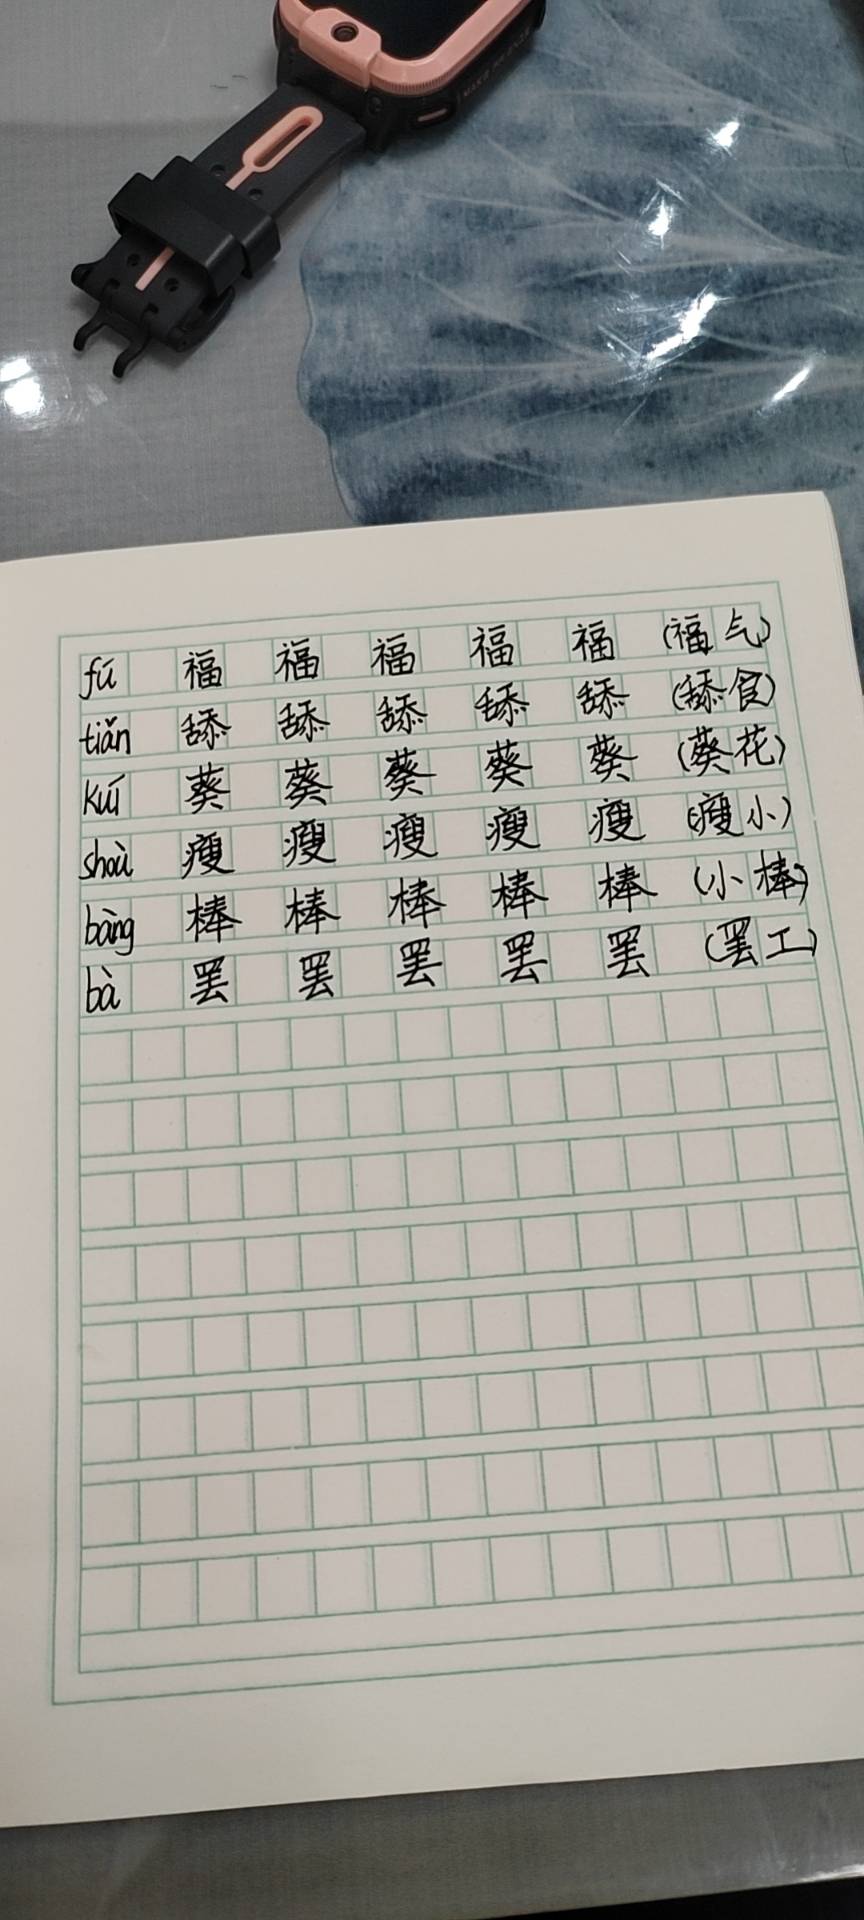 fú 福 福 福 福 福 (福气)
tiǎn 舔 舔 舔 舔 舔 (舔食)
kuí 葵 葵 葵 葵 葵 (葵花)
shòu 瘦 瘦 瘦 瘦 瘦 (瘦小)
bàng 棒 棒 棒 棒 棒 (小棒)
bà 罢 罢 罢 罢 罢 (罢工)